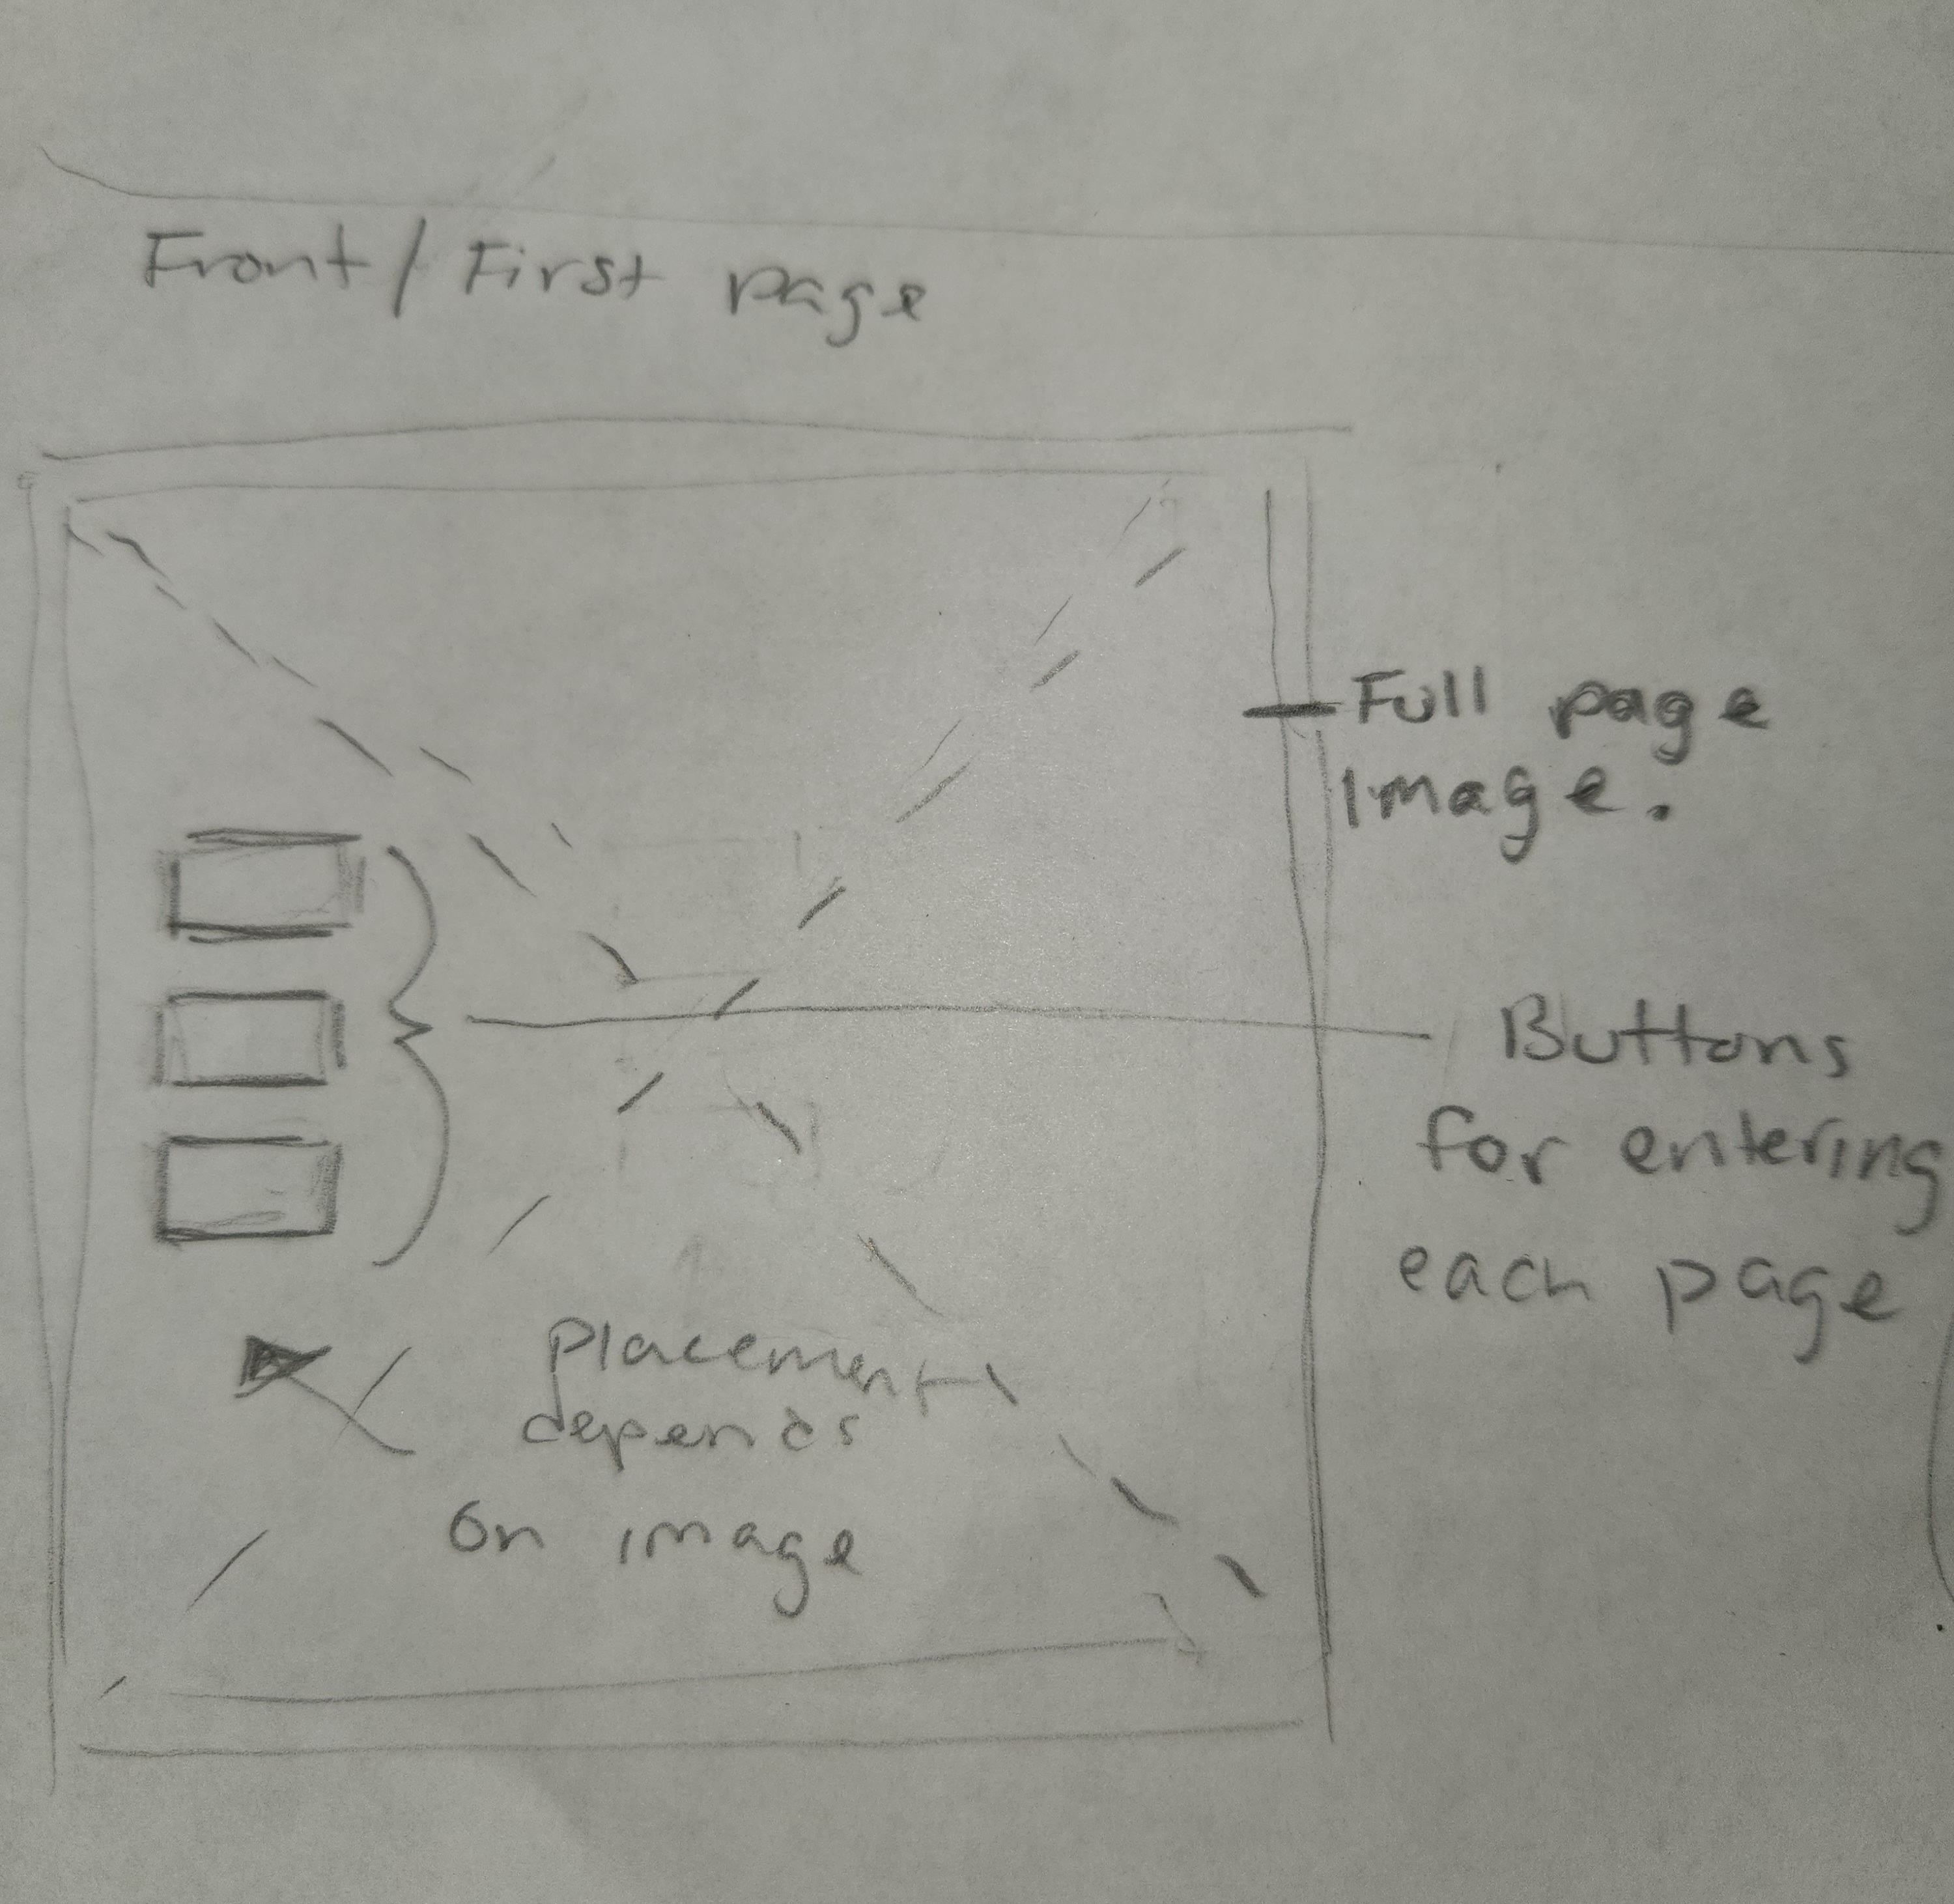 Front/First page
Full page
Image.
Buttons
for entering
each page
placement
depends
on image